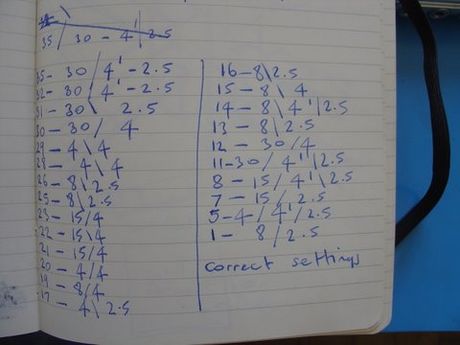 35 / 30 - 4' | 2.5
35 - 30 / 4' - 2.5
32 - 30 / 4' - 2.5
31 - 30 \ 2.5
30 - 30 / 4
29 - 4 \ 4
28 - 4 \ 4
26 - 8 \ 2.5
25 - 8 \ 2.5
23 - 15/4
22 - 15\4
21 - 15/4
20 - 4/4
19 - 8/4
17 - 4\ 2.5
16 - 8\ 2.5
15 - 8 \ 4
14 - 8 \ 4' | 2.5
13 - 8 \ 2.5
12 - 30/4
11 - 30/ 4' | 2.5
8 - 15/ 4' \ 2.5
7 - 15 / 2.5
5 - 4 / 4' / 2.5
1 - 8 / 2.5
correct settings